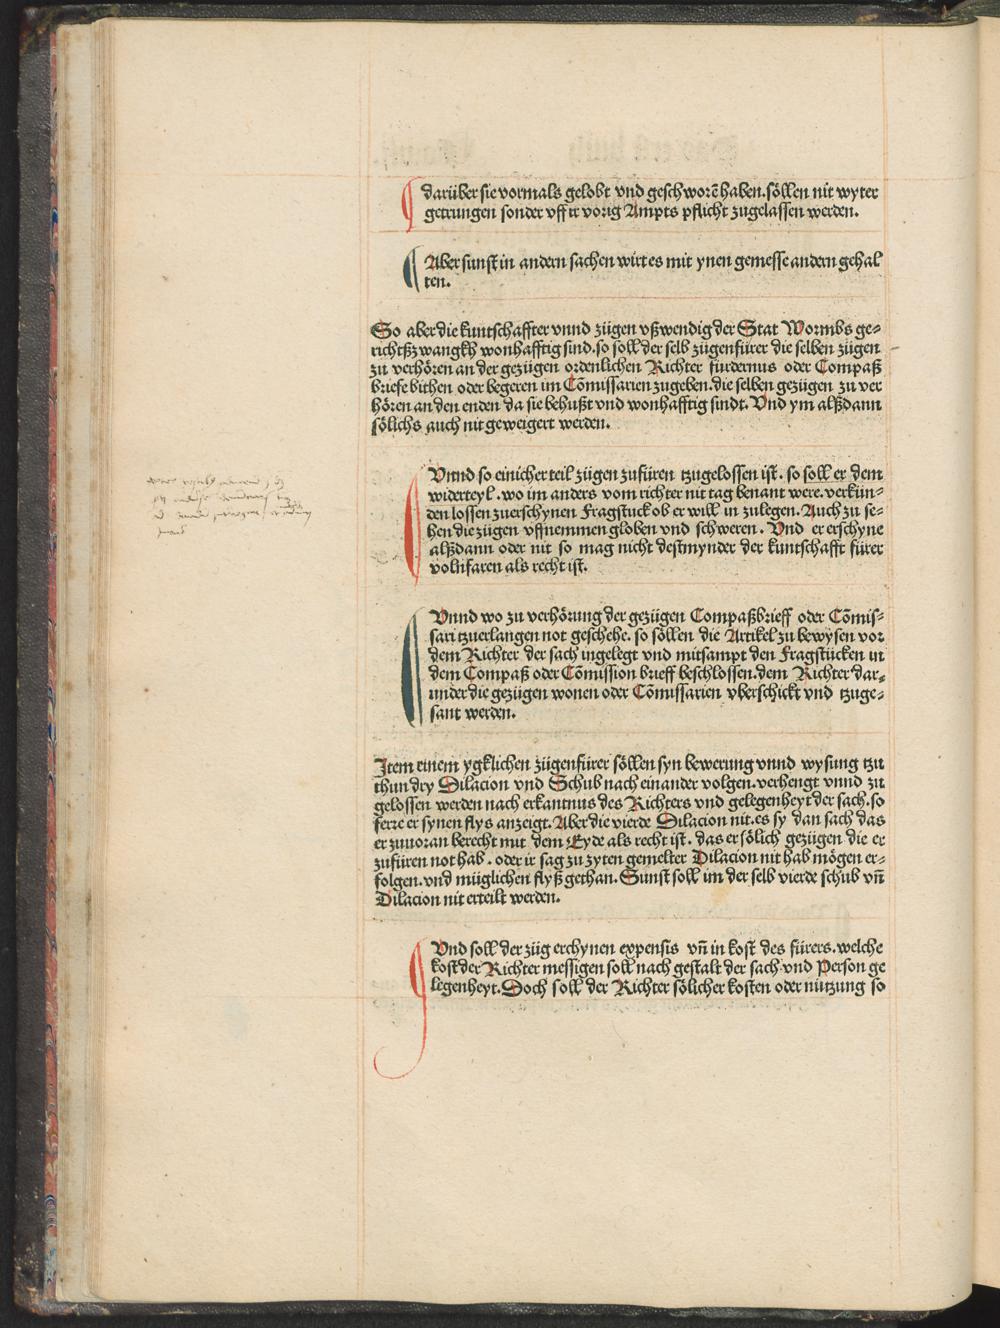 darüber sie vormals gelobt vnd geschworē haben. söllen nit wyter
getrungen sonder vff ir vorig Ampts pflicht zugelassen werden.
Aber sunst in andern sachen wirt es mit ynen gemesse andern gehal
ten.
So aber die kuntschaffter vnnd zügen vßwendig der Stat Wormbs ge-
richtßzwangkh wonhafftig sind. so soll der selb zügenfürer die selben zügen
zu verhören an der gezügen ordenlichen Richter furdernus oder Compaß
briefe bithen oder begeren im Cōmissarien zugeben. die selben gezügen zu ver
hören an den enden da sie behußt vnd wonhafftig sindt. Vnd ym alßdann
sölichs auch nit geweigert werden.
Vnnd so einicher teil zügen zufüren tzugelossen ist. so soll er dem
widerteyl. wo im anders vom richter nit tag benant were. verkün-
den lossen zuerschynen Fragstuck ob er will in zulegen. Auch zu se-
hen die zügen vffnemmen globen vnd schweren. Vnd er erschyne
alßdann oder nit so mag nicht destmynder der kuntschafft fürer
volnfaren als recht ist.
Vnnd wo zu verhörung der gezügen Compaßbrieff oder Cōmis-
sari tzuerlangen not geschehe. so söllen die Artikel zu bewysen vor
dem Richter der sach ingelegt vnd mitsampt den Fragstücken in
dem Compaß oder Cōmission brieff beschlossen. dem Richter dar-
under die gezügen wonen oder Cōmissarien vberschickt vnd tzuge-
sant werden.
Item einem ygklichen zügenfürer söllen syn bewerung vnnd wysung tzu
thun dry Dilacion vnd Schub nach einander volgen. verhengt vnnd zu
gelossen werden nach erkantnus des Richters vnd gelegenheyt der sach. so
ferre er synen flys anzeigt. Aber die vierde Dilacion nit. es sy dan sach das
er zuuoran berecht mit dem Eyde als recht ist. das er sölich gezügen die er
zufüren not hab. oder ir sag zu zyten gemelter Dilacion nit hab mögen er-
folgen. vnd müglichen flyß gethan. Sunst soll im der selb vierde schub vn̄
Dilacion nit erteilt werden.
Vnd soll der züg erchynen expensis vn̄ in kost des fürers. welche
kost der Richter messigen soll nach gestalt der sach vnd Person ge
legenheyt. Doch soll der Richter sölicher kosten oder nützung so